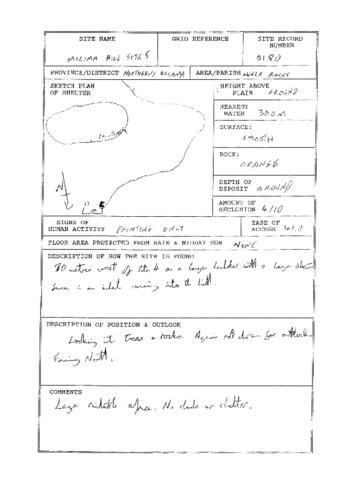 SITE NAME
GRID REFERENCE
SITE RECORD NUMBER
MILIMA HILL SITE 5
0180
PROVINCE/DISTRICT NORTHERN
AREA/PARISH ROCKS
SKETCH PLAN OF SHELTER
HEIGHT ABOVE PLAIN GROUND
NEAREST WATER 300m
SURFACE:
SMOOTH
ROCK:
ORANGE
DEPTH OF DEPOSIT GROUND
AMOUNT OF SECLUSION 4/10
N
SIGNS OF HUMAN ACTIVITY PAINTING ONLY
EASE OF ACCESS
FLOOR AREA PROTECTED FROM RAIN & MIDDAY SUN NONE
DESCRIPTION OF HOW THE SITE IS FOUND
80 metres west of site 4 on a large boulder with a large
an inlet running into the hill.
DESCRIPTION OF POSITION & OUTLOOK
Looking at trees & rocks. Again not chosen for outlook.
Facing North.
COMMENTS
Large paintable surface. No shade or shelter.